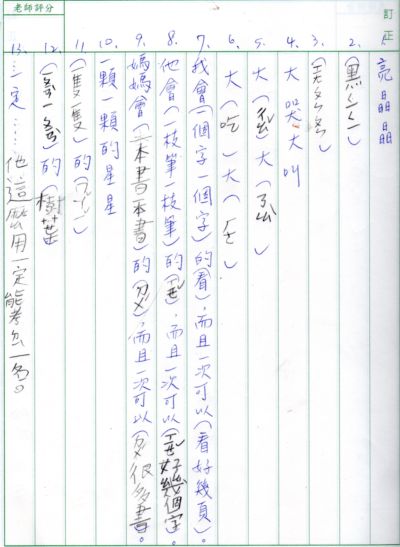 老師評分
訂正
1. 亮晶晶
2. (黑ㄑㄑ)
3.
4. 大哭大叫
5. 大( )大( )
6. 大(吃)大( )
7. 我會(一個字一個字)的(看),而且一次可以(看好幾頁)。
8. 他會(一枝筆一枝筆)的(ㄒㄧㄝˇ),而且一次可以(ㄒㄧㄝˇ好幾個字)。
9. 媽媽會(一本書一本書)的(ㄉㄨˊ),而且一次可以(ㄉㄨˊ很多書)。
10. 一顆一顆的星星
11. (一隻一隻)的( )
12. ( )的(樹葉)
13. 一定……他這麼用一定能考 一名。